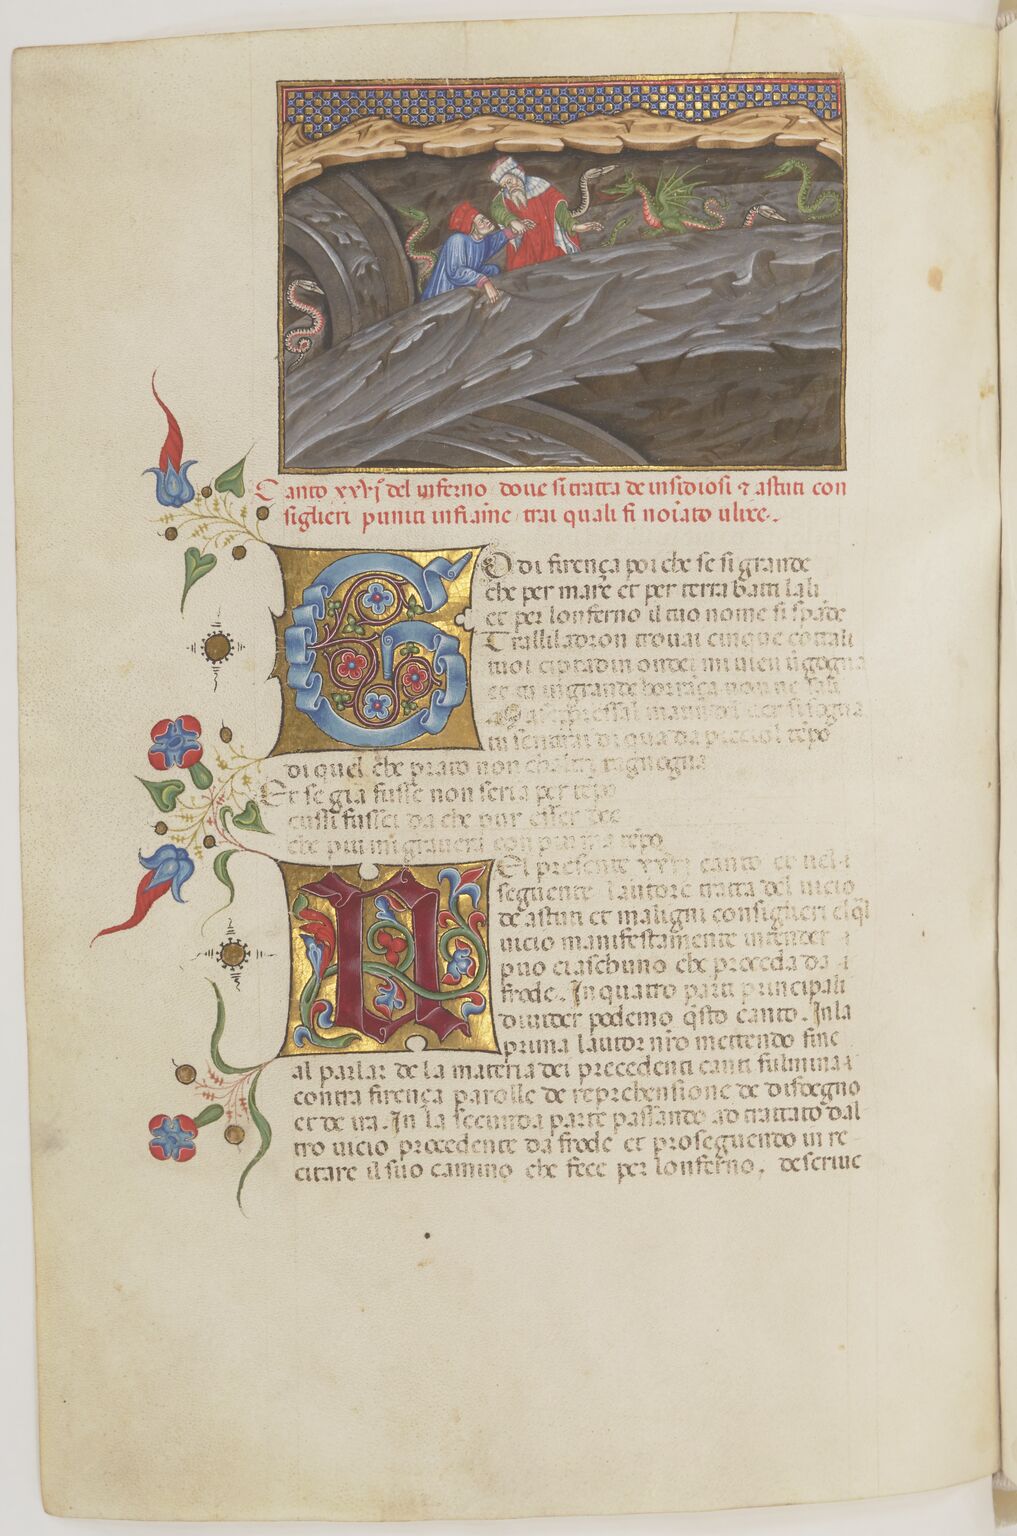 Canto xxvj del inferno doue si tracta de insidiosi ⁊ astuti con
siglieri puniti in fiam̄e trai quali fi noīato ulixe.
GODi firença poi che se si grande
che per mare et per terra batti lali
et per lonferno il tuo nome si spāde
Tralliladron trouai cinque cotali
tuoi ciptadin ondei mi uien ūgogna
et tu in grande non ne sali
Ma sel mattin del uer si sogna
tu sentirai di qua da picciol tēpo
di quel che prato non chaltri tagnogna
Et se gia fusse non seria per tēpo
cussi fussei da che pur esser dee
che piu mi grauera con piu tēpo
NEl presente xxvj canto et nel
seguente lautore tracta del uicio
de astuti et maligni consiglieri el q̄l
uicio manifestamente intender
puo ciaschuno che proceda da
frode. In quatro parti principali
diuider podemo q̄sto canto. Inla
prima lautor nr̄o mettendo fine
al parlar de la materia dei precedenti canti fulmina
contra firença parolle de reprehensione de disdegno
et de ira. In la secunda parte passando ad tractato dal
tro uicio procedente da frode et proseguendo in re
citare il suo camino che fece per lonferno, descriue